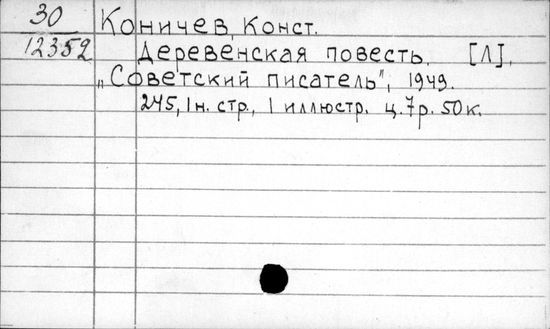 30
12352
Коничев, Конст.
Деревенская повесть. [Л].
„Советский писатель", 1949.
245, 1 н. стр., 1 иллюстр. ц. 7 р. 50 к.